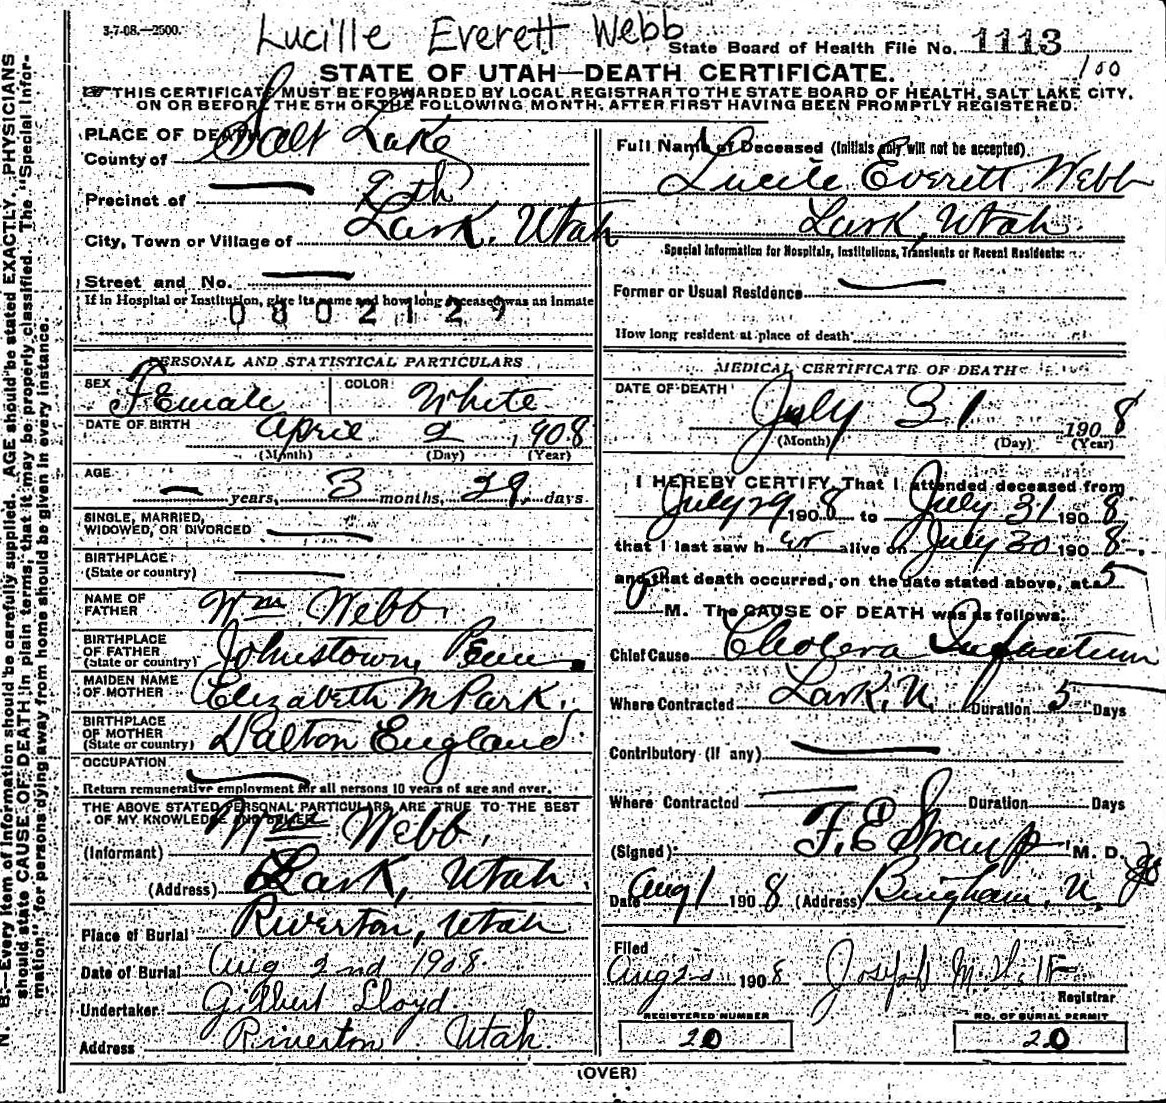 3-7-08.—2500.
Lucille Everett Webb
State Board of Health File No. 1113
100
STATE OF UTAH—DEATH CERTIFICATE.
THIS CERTIFICATE MUST BE FORWARDED BY LOCAL REGISTRAR TO THE STATE BOARD OF HEALTH, SALT LAKE CITY,
ON OR BEFORE THE 5TH OF THE FOLLOWING MONTH, AFTER FIRST HAVING BEEN PROMPTLY REGISTERED.
N. B.—Every item of information should be carefully supplied. AGE should be stated EXACTLY. PHYSICIANS
should state CAUSE OF DEATH in plain terms, that it may be properly classified. The "Special Infor-
mation" for persons dying away from home should be given in every instance.
PLACE OF DEATH
County of Salt Lake
Precinct of 9th
City, Town or Village of Lark, Utah
Street and No.
If in Hospital or Institution, give its name and how long deceased was an inmate
0802127
PERSONAL AND STATISTICAL PARTICULARS
SEX Female COLOR White
DATE OF BIRTH April 2, 1908
(Month) (Day) (Year)
AGE — years, 3 months, 29 days
SINGLE, MARRIED,
WIDOWED, OR DIVORCED
BIRTHPLACE
(State or country)
NAME OF
FATHER Wm Webb
BIRTHPLACE
OF FATHER
(State or country) Johnstown, Penn.
MAIDEN NAME
OF MOTHER Elizabeth M Park.
BIRTHPLACE
OF MOTHER
(State or country) Dalton England
OCCUPATION
Return remunerative employment for all persons 10 years of age and over.
THE ABOVE STATED PERSONAL PARTICULARS ARE TRUE TO THE BEST
OF MY KNOWLEDGE AND BELIEF
(Informant) Wm Webb.
(Address) Lark, Utah.
Place of Burial Riverton, Utah
Date of Burial Aug 2nd 1908.
Undertaker Gilbert Lloyd.
Address Riverton Utah.
Full Name of Deceased (Initials only will not be accepted)
Lucile Everitt Webb
Lark, Utah.
Special Information for Hospitals, Institutions, Transients or Recent Residents:
Former or Usual Residence
How long resident at place of death
MEDICAL CERTIFICATE OF DEATH
DATE OF DEATH July 31 1908
(Month) (Day) (Year)
I HEREBY CERTIFY, That I attended deceased from
July 29 1908 to July 31 1908
that I last saw her alive on July 30 1908.
and that death occurred, on the date stated above, at 5
M. The CAUSE OF DEATH was as follows:
Chief Cause Cholera Infantum
Where Contracted Lark, U. Duration 5 Days
Contributory (if any)
Where Contracted Duration Days
(Signed) F. E. Straup M. D.
Date Aug 1 1908 (Address) Bingham, U.
Filed
Aug 2d 1908 Joseph M.
Registrar
REGISTERED NUMBER
20
NO. OF BURIAL PERMIT
20
(OVER)